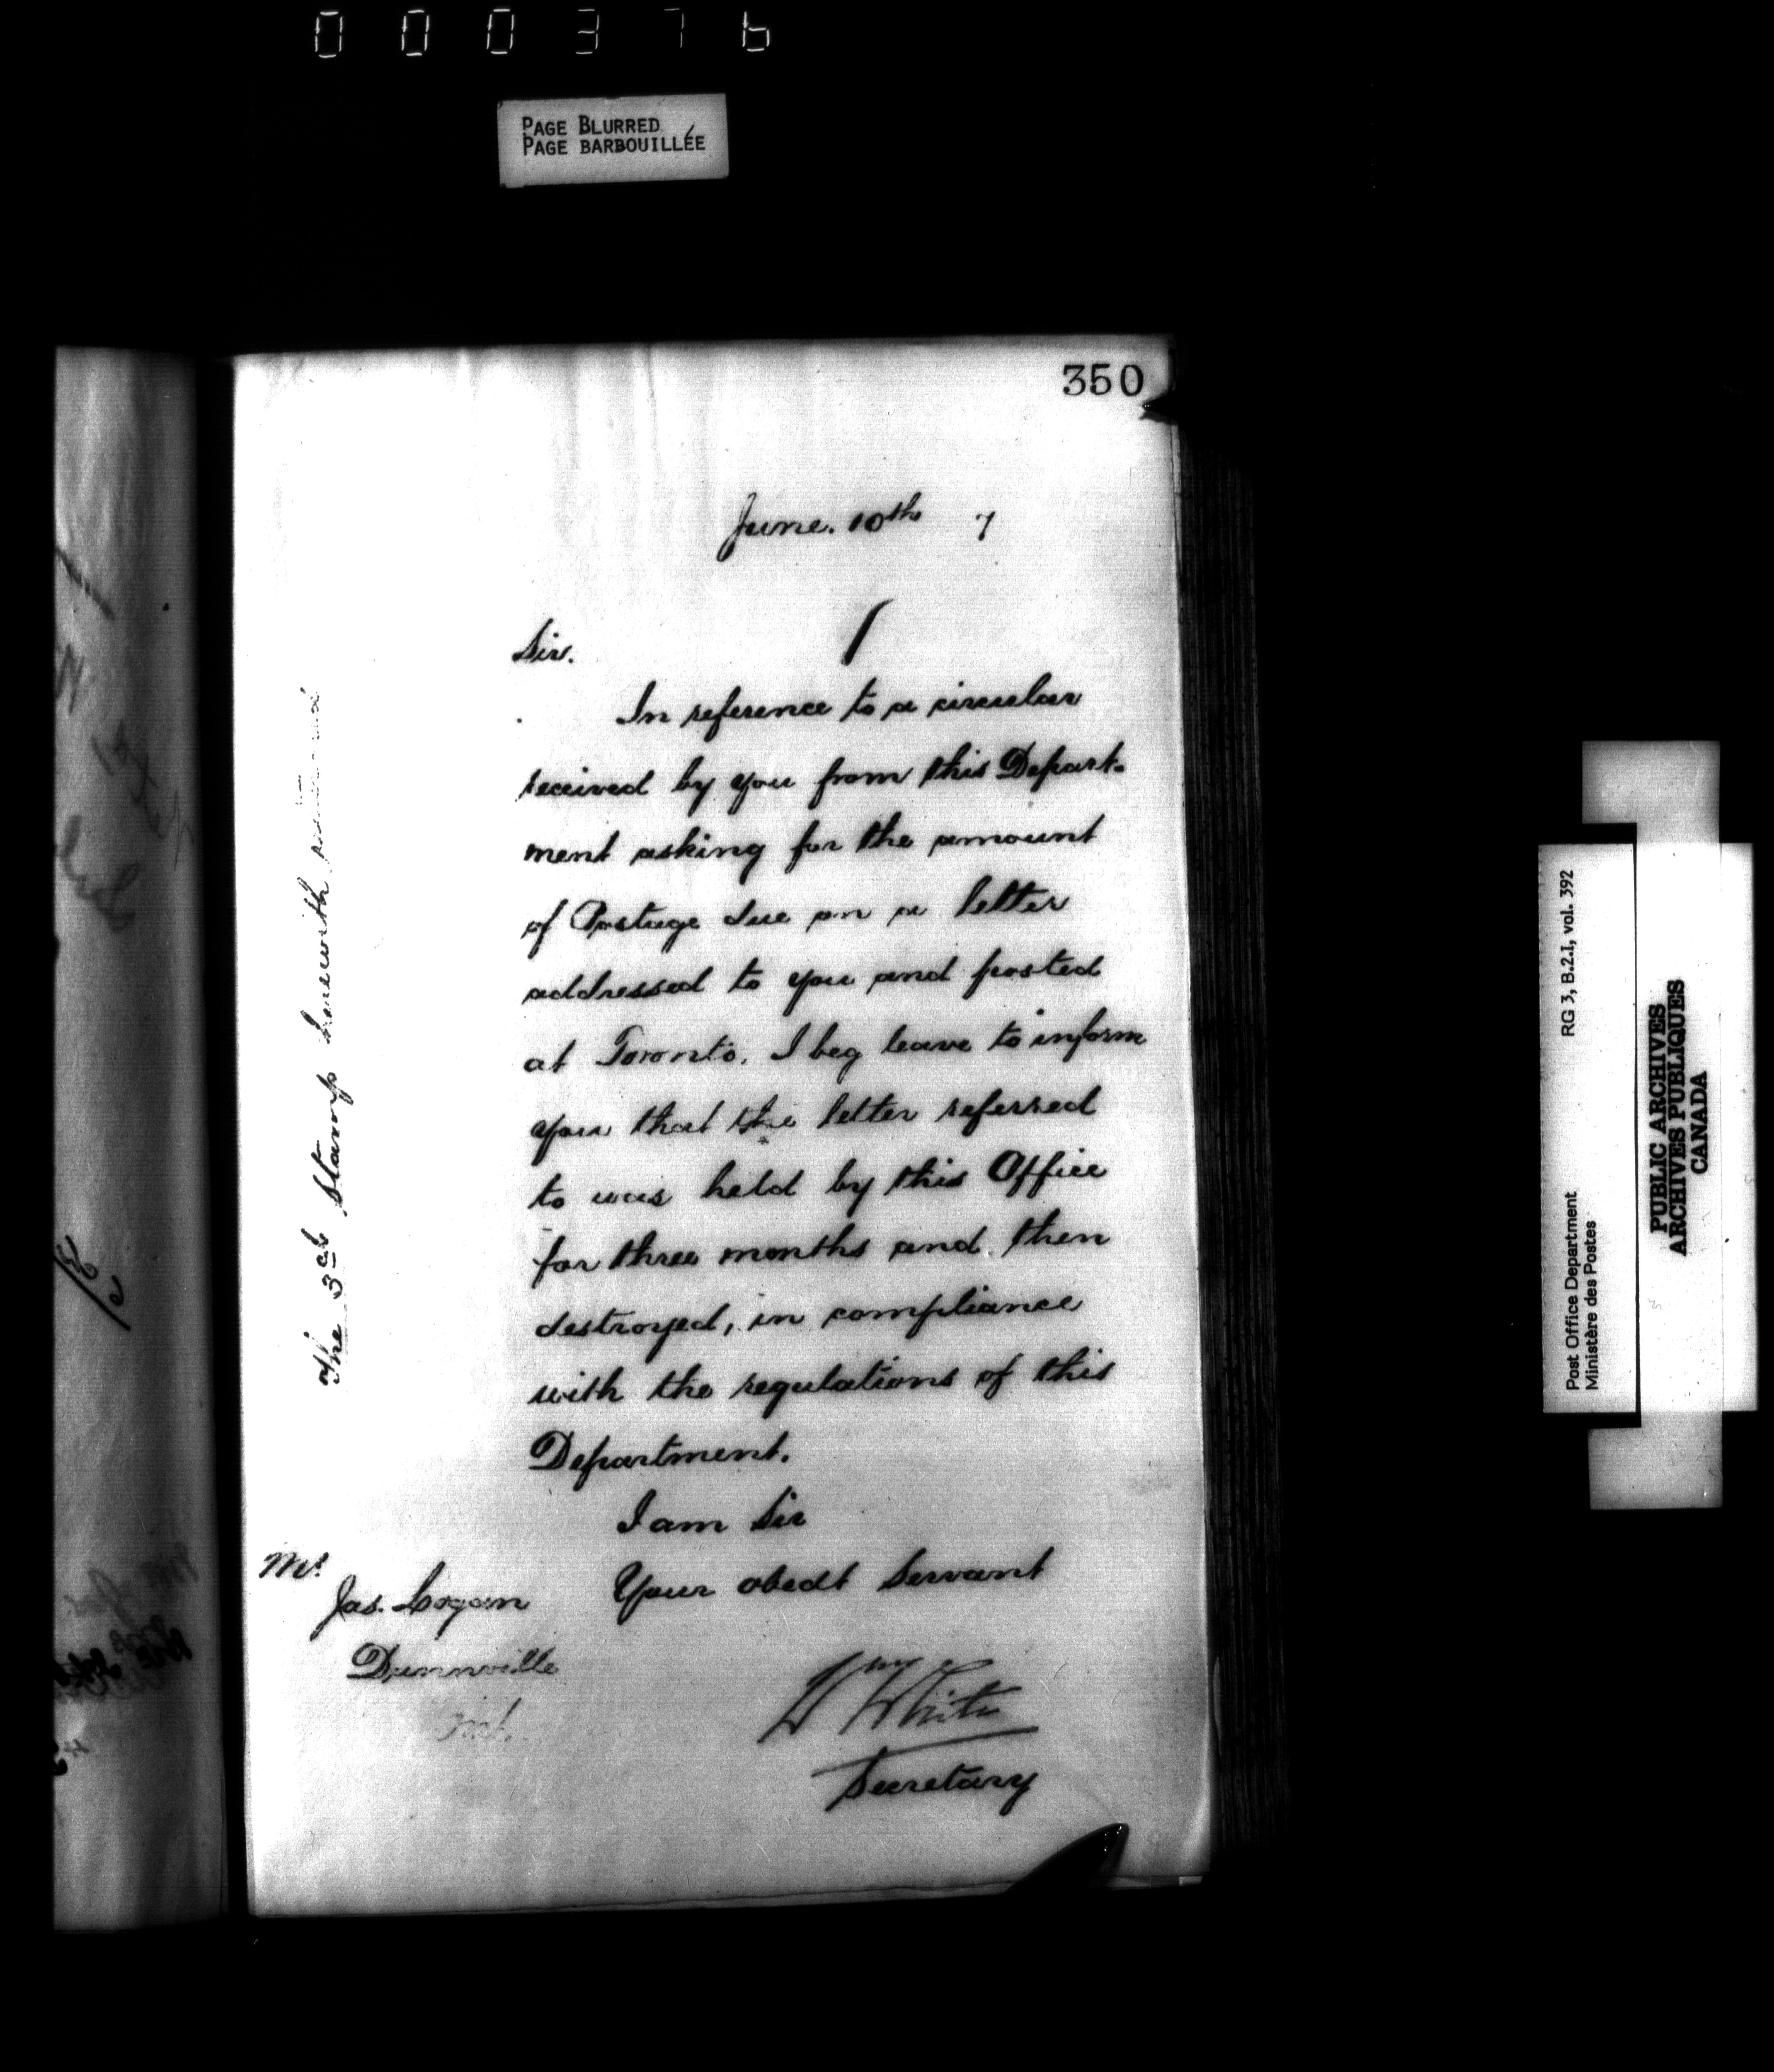 000376
PAGE BLURRED
PAGE BARBOUILLÉE
350
June. 10th 7
Sir.
In reference to a circular
received by you from this Depart-
ment asking for the amount
of Postage due on a letter
addressed to you and posted
at Toronto, I beg leave to inform
you that the letter referred
to was held by this Office
for three months and then
destroyed, in compliance
with the regulations of this
Department.
I am Sir
Your obedt Servant
Wm White
Secretary
Mr
Jas. Logan
Dunnville
Ont.
The 3 ct Stamp herewith returned
Post Office Department
Ministère des Postes
RG 3, B.2.1, vol. 392
PUBLIC ARCHIVES
ARCHIVES PUBLIQUES
CANADA